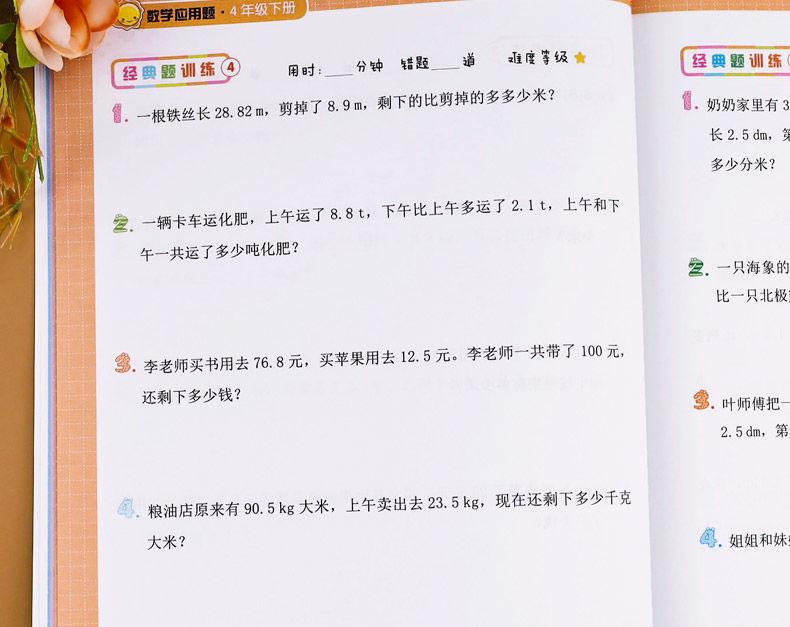 数学应用题·4年级下册
经典题训练 4
用时:___分钟 错题___道 难度等级
1. 一根铁丝长 28.82 m，剪掉了 8.9 m，剩下的比剪掉的多多少米？
2. 一辆卡车运化肥，上午运了 8.8 t，下午比上午多运了 2.1 t，上午和下
午一共运了多少吨化肥？
3. 李老师买书用去 76.8 元，买苹果用去 12.5 元。李老师一共带了 100 元，
还剩下多少钱？
4. 粮油店原来有 90.5 kg 大米，上午卖出去 23.5 kg，现在还剩下多少千克
大米？
经典题训练
1. 奶奶家里有 3
长 2.5 dm，第
多少分米？
2. 一只海象的
比一只北极
3. 叶师傅把一
2.5 dm，第
4. 姐姐和妹